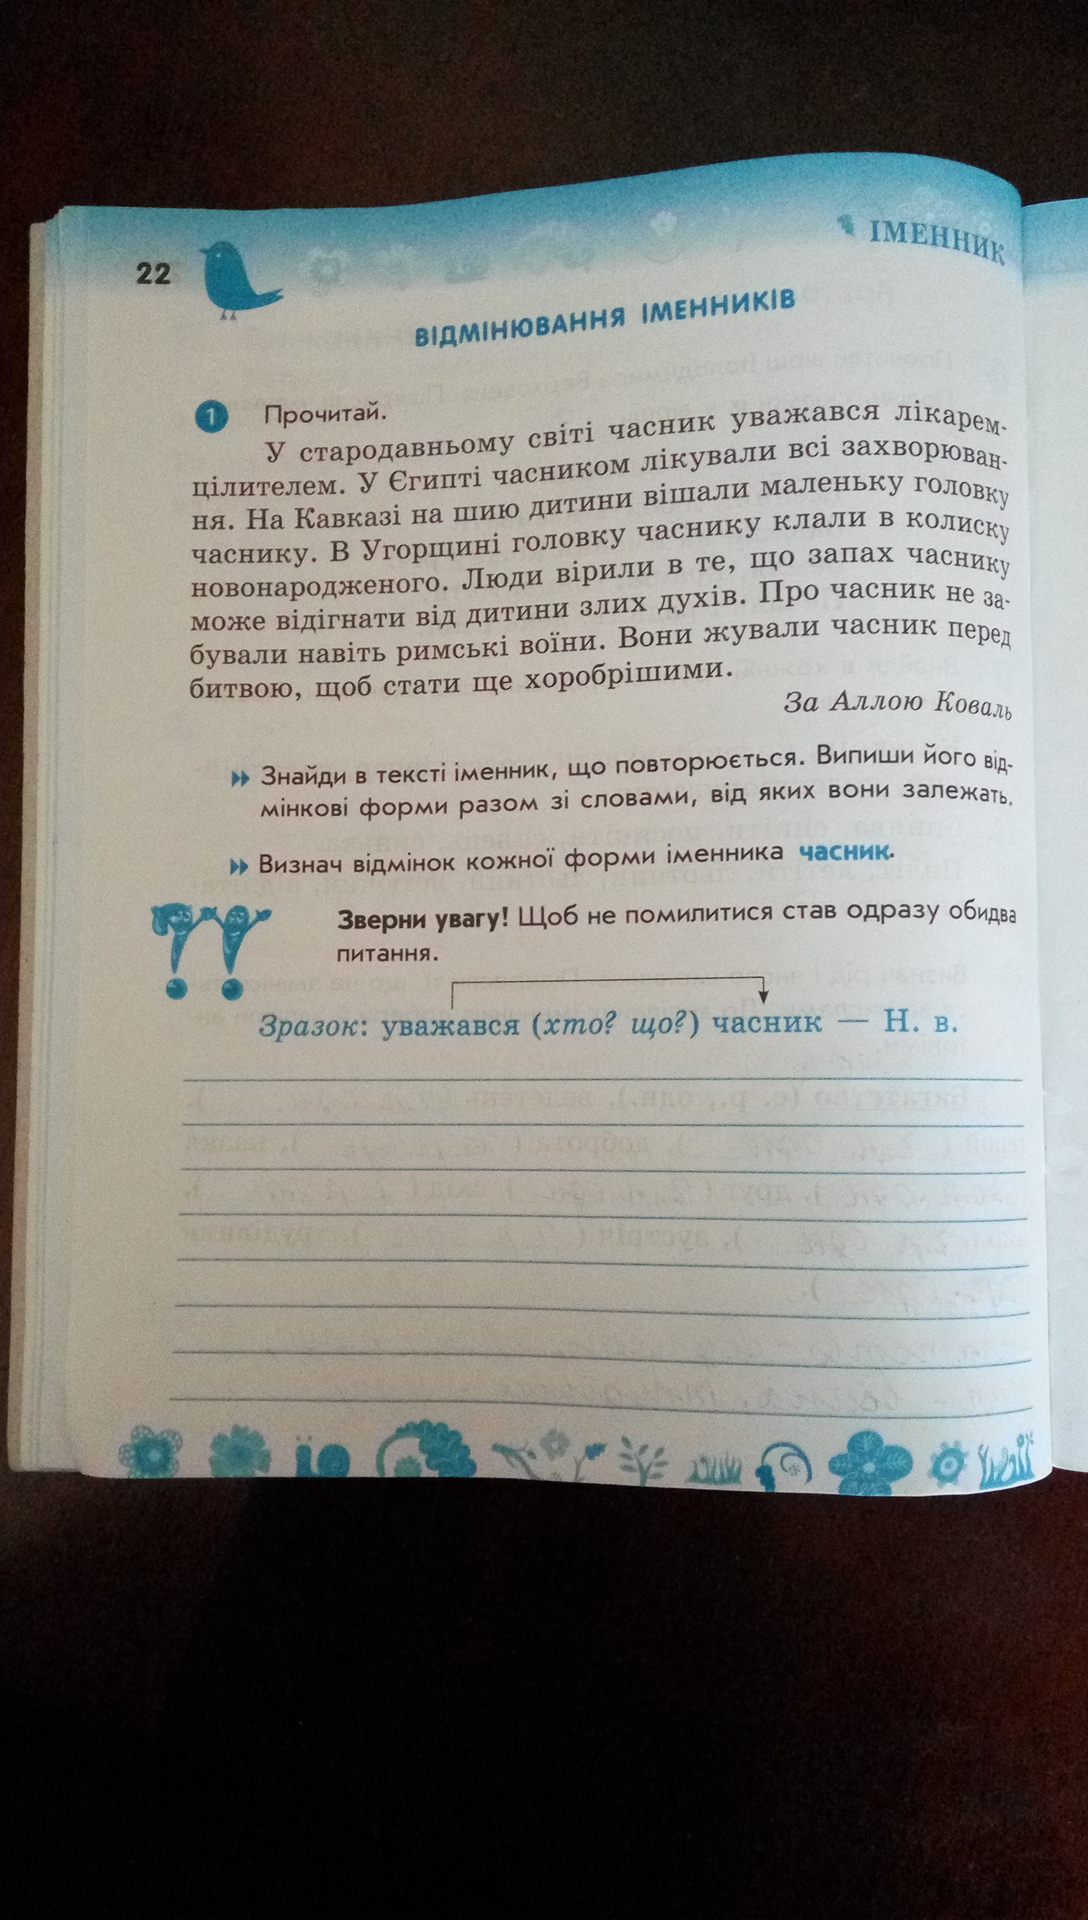 22
ІМЕННИК
ВІДМІНЮВАННЯ ІМЕННИКІВ
1 Прочитай.
У стародавньому світі часник уважався лікарем-
цілителем. У Єгипті часником лікували всі захворюван-
ня. На Кавказі на шию дитини вішали маленьку головку
часнику. В Угорщині головку часнику клали в колиску
новонародженого. Люди вірили в те, що запах часнику
може відігнати від дитини злих духів. Про часник не за-
бували навіть римські воїни. Вони жували часник перед
битвою, щоб стати ще хоробрішими.
За Аллою Коваль
Знайди в тексті іменник, що повторюється. Випиши його від-
мінкові форми разом зі словами, від яких вони залежать.
Визнач відмінок кожної форми іменника часник.
Зверни увагу! Щоб не помилитися став одразу обидва
питання.
Зразок: уважався (хто? що?) часник — Н. в.